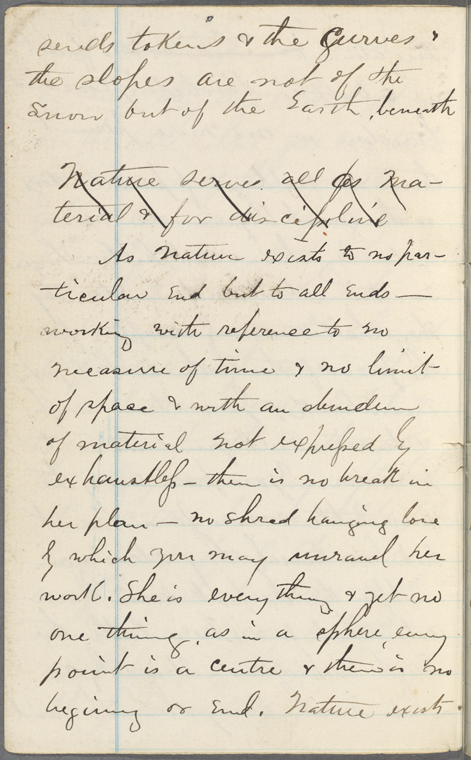 sends tokens & the curves &
the slopes are not of the
Snow but of the Earth, beneath
Nature serves all as ma-
terial & for discipline
As Nature exists to no par-
ticular End but to all Ends —
working with reference to no
measure of time & no limit
of space & with an
of material not expressed by
exhaustless — there is no break in
her plan — no shred hanging lose
by which you may unravel her
work. She is every thing & yet no
one thing, as in a sphere, every
point is a centre & there is no
begining or End. Nature exists